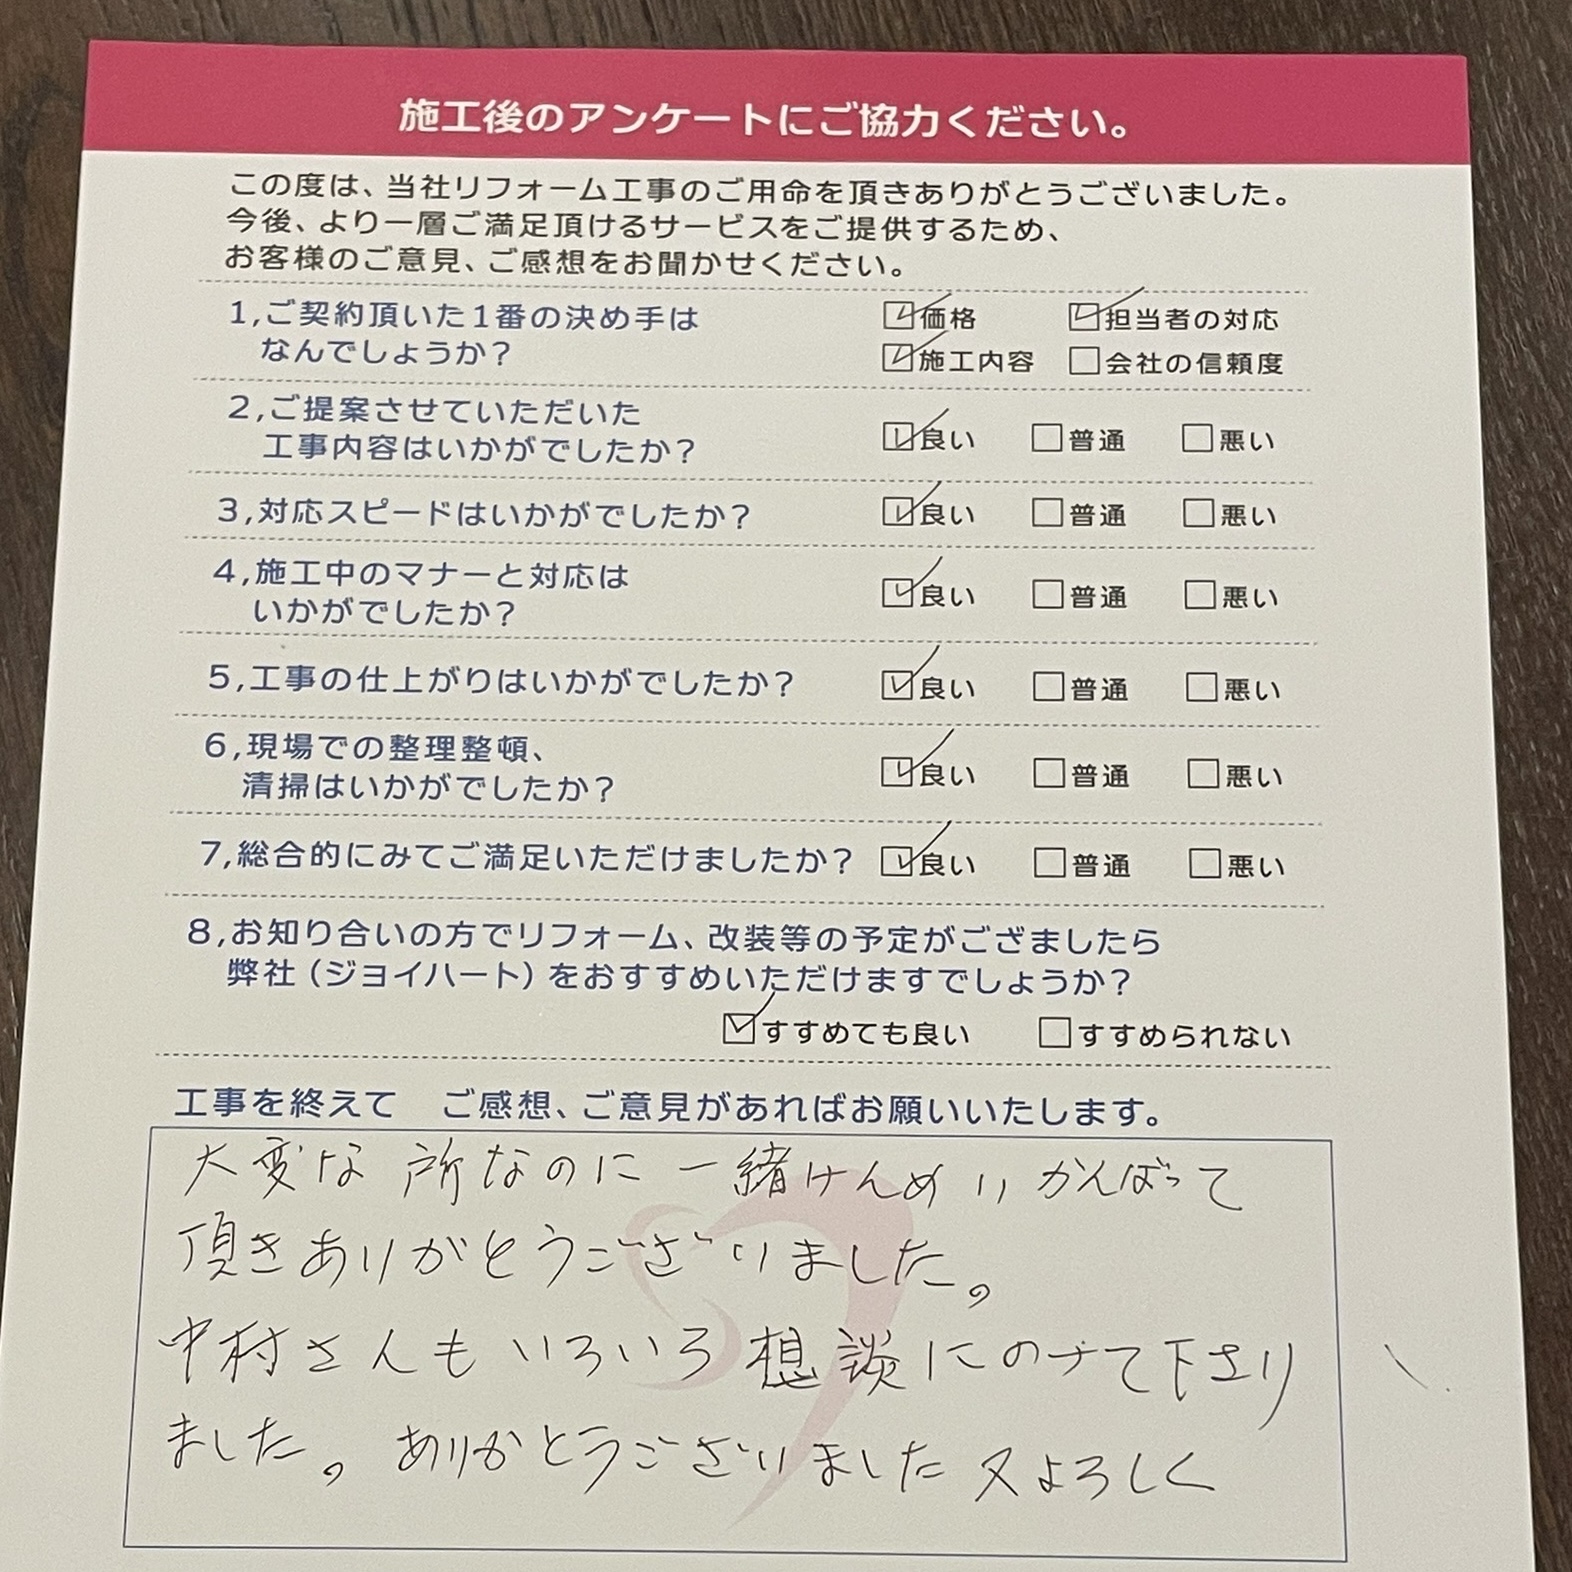 施工後のアンケートにご協力ください。
この度は、当社リフォーム工事のご用命を頂きありがとうございました。
今後、より一層ご満足頂けるサービスをご提供するため、
お客様のご意見、ご感想をお聞かせください。
1,ご契約頂いた1番の決め手は
なんでしょうか?
☑価格 ☑担当者の対応
☑施工内容 □会社の信頼度
2,ご提案させていただいた
工事内容はいかがでしたか?
☑良い □普通 □悪い
3,対応スピードはいかがでしたか? ☑良い □普通 □悪い
4,施工中のマナーと対応は
いかがでしたか?
☑良い □普通 □悪い
5,工事の仕上がりはいかがでしたか? ☑良い □普通 □悪い
6,現場での整理整頓、
清掃はいかがでしたか?
☑良い □普通 □悪い
7,総合的にみてご満足いただけましたか? ☑良い □普通 □悪い
8,お知り合いの方でリフォーム、改装等の予定がござましたら
弊社(ジョイハート)をおすすめいただけますでしょうか?
☑すすめても良い □すすめられない
工事を終えて ご感想、ご意見があればお願いいたします。
大変な所なのに一緒けんめいがんばって
頂きありがとうございました。
中村さんもいろいろ想談にのって下さり
ました。ありがとうございました又よろしく